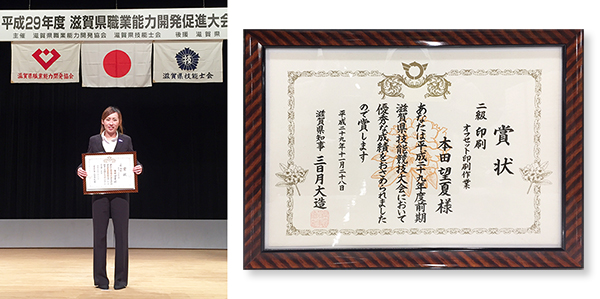 平成29年度 滋賀県職業能力開発促進大会
主催 滋賀県職業能力開発協会 滋賀県技能士会 後援 滋賀県
滋賀県職業能力開発協会
技
滋賀県技能士会
賞状
二級 印刷
オフセット印刷作業
本田 望夏様
あなたは平成二十九年度前期
滋賀県技能競技大会において
優秀な成績をおさめられました
ので賞します
平成二十九年十一月二十八日
滋賀県知事 三日月大造